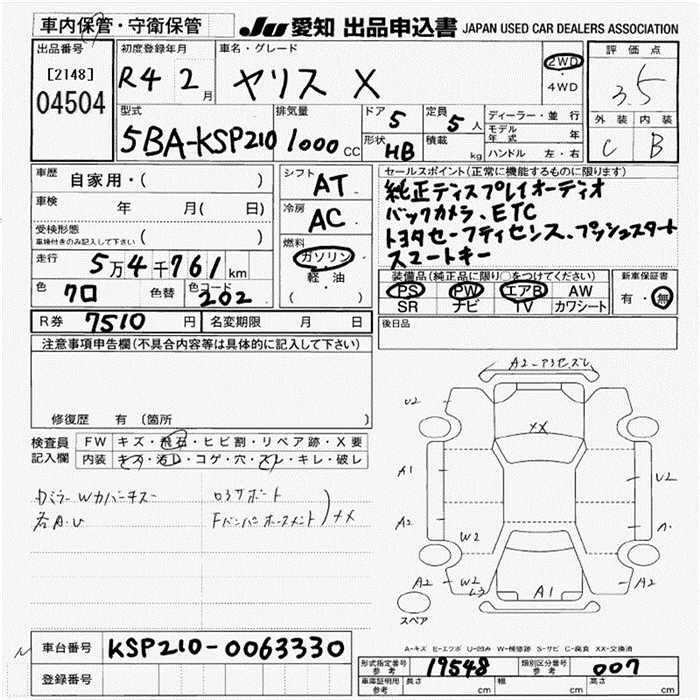 車内保管・守衛保管
JU 愛知 出品申込書 JAPAN USED CAR DEALERS ASSOCIATION
出品番号
[2148]
04504
初度登録年月
R4 2月
車名・グレード
ヤリス X
2WD
・
4WD
評価点
3.5
外装 内装
C B
型式
5BA-KSP210
排気量
1000 CC
ドア 5
形状 HB
定員 5人
積載 kg
ディーラー・並行
モデル年式 年
ハンドル 左・右
車歴 自家用・( )
車検 年 月( 日)
受検形態
車検付きのみ記入して下さい ( )
走行 5万4千761km
色 クロ 色替 色コード 202
シフト AT
冷房 AC
燃料
ガソリン
・
軽・油
( )
セールスポイント(正常に機能するものに限ります)
純正ディスプレイオーディオ
バックカメラ、ETC
トヨタセーフティセンス、プッシュスタート
スマートキー
装備品(純正品に限り○をつけてください)
PS PW エアB AW
SR ナビ TV カワシート
新車保証書
有・無
R券 7510円 名変期限 月 日
後日品
注意事項申告欄(不具合内容等は具体的に記入して下さい)
修復歴 有 〔箇所
検査員記入欄
FW キズ・飛石・ヒビ割・リペア跡・X要
内装 キズ・汚レ・コゲ・穴・スレ・キレ・破レ
ロアサポート
XX
U2
A1
A2
A2
XX
U2
A
W2
W2
A1
A2
スペア
A-キズ E-エクボ U-凹み W-補修跡 S-サビ C-腐食 XX-交換済
車台番号 KSP210-0063330
登録番号
形式指定番号 参考 19548 類別区分番号 参考 007
車庫証明用 参考 長さ cm 幅 cm 高さ cm